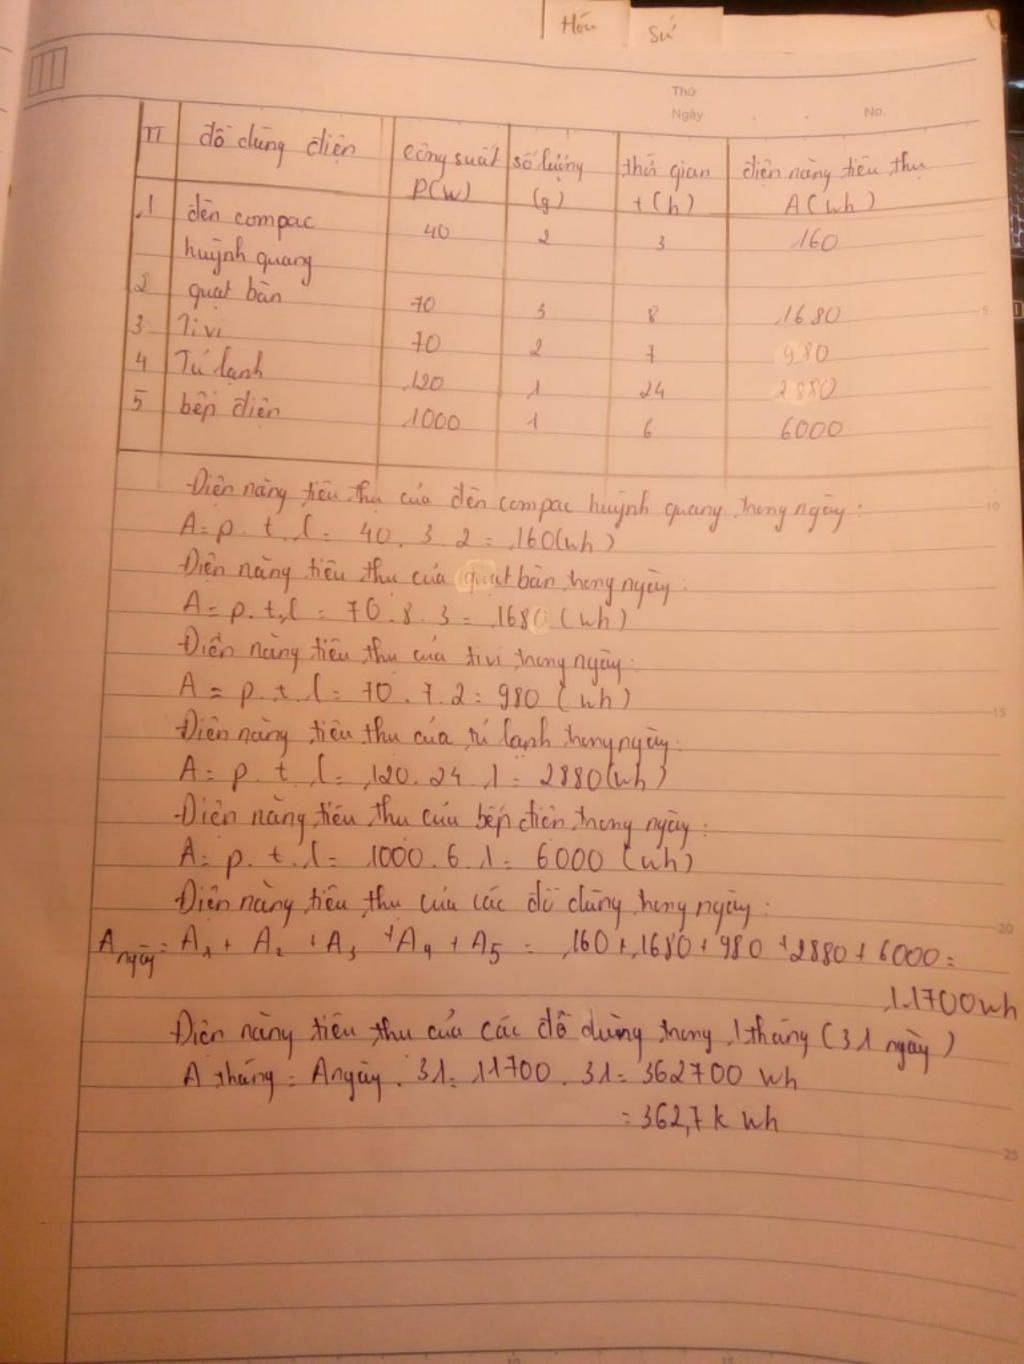 Hóa Sử
Thứ
Ngày No.
TT đồ dùng điện công suất P(W) số lượng (g) thời gian t(h) điện năng tiêu thụ A(Wh)
1 đèn compac huỳnh quang 40 2 3 160
2 quạt bàn 70 3 8 1680
3 Ti vi 70 2 7 980
4 Tủ lạnh 120 1 24 2880
5 bếp điện 1000 1 6 6000
Điện năng tiêu thụ của đèn compac huỳnh quang trong ngày:
A = p. t. l = 40. 3. 2 = 160(wh)
Điện năng tiêu thụ của quạt bàn trong ngày:
A = p. t. l = 70. 8. 3 = 1680 (wh)
Điện năng tiêu thụ của tivi trong ngày:
A = p. t. l = 70. 7. 2 = 980 (wh)
Điện năng tiêu thụ của tủ lạnh trong ngày:
A = p. t. l = 120. 24. 1 = 2880(wh)
Điện năng tiêu thụ của bếp điện trong ngày:
A = p. t. l = 1000. 6. 1 = 6000 (wh)
Điện năng tiêu thụ của các đồ dùng trong ngày:
A ngày = A1 + A2 + A3 + A4 + A5 = 160 + 1680 + 980 + 2880 + 6000 =
11700wh
Điện năng tiêu thụ của các đồ dùng trong 1 tháng (31 ngày)
A tháng = A ngày . 31 = 11700 . 31 = 362700 wh
= 362,7 k wh
5
10
15
20
25
10 15